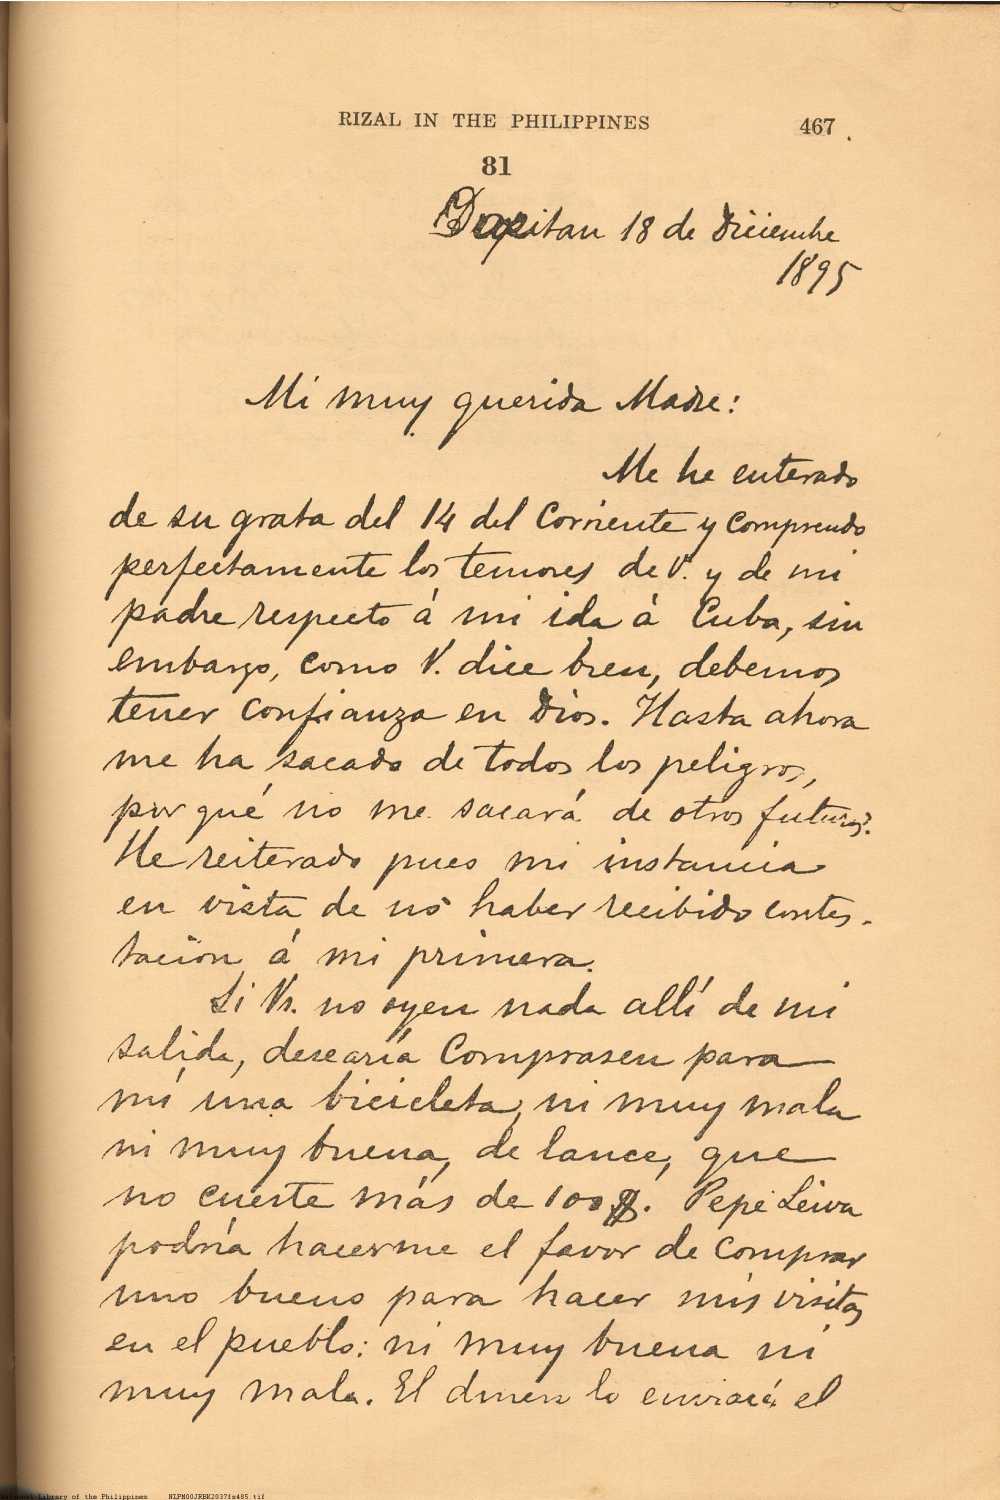 RIZAL IN THE PHILIPPINES 467
81
Dapitan 18 de Diciembre
1895
Mi muy querida Madre:
Me he enterado
de su grata del 14 del Corriente y comprendo
perfectamente los temores de V. y de mi
padre respecto á mi ida á Cuba, sin
embargo, como V. dice bien, debemos
tener confianza en Dios. Hasta ahora
me ha sacado de todos los peligros,
por qué no me sacará de otros futuros?
He reiterado pues mi instancia
en vista de no haber recibido contes-
tación á mi primera.
Si Vs. no oyen nada allí de mi
salida, desearía Comprasen para
mí una bicicleta, ni muy mala
ni muy buena, de lance, que
no cueste más de 100 $. Pepe Leiva
podría hacerme el favor de comprar
uno bueno para hacer mis visitas
en el pueblo: ni muy buena ni
muy mala. El dinero lo enviará el
National Library of the Philippines NLPM00JRBK2037fs485.tif